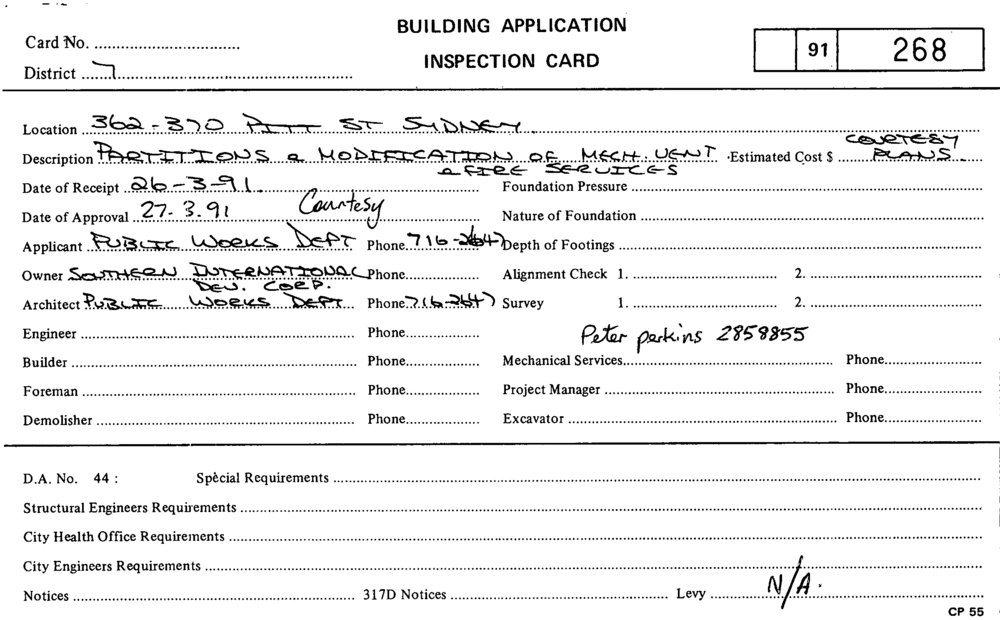 BUILDING APPLICATION
INSPECTION CARD
Card No.
91 268
District 7
Location 362-370 PITT ST SYDNEY.
Description PARTITIONS & MODIFICATION OF MECH. VENT Estimated Cost $ COURTESY PLANS
& FIRE SERVICES
Date of Receipt 26-3-91. Foundation Pressure
Date of Approval 27.3.91 Courtesy Nature of Foundation
Applicant PUBLIC WORKS DEPT Phone 716-2647 Depth of Footings
Owner SOUTHERN INTERNATIONAL DEV. CORP. Phone Alignment Check 1. 2.
Architect PUBLIC WORKS DEPT Phone 716-2647 Survey 1. 2.
Engineer Phone
Peter perkins 2858855
Builder Phone Mechanical Services Phone
Foreman Phone Project Manager Phone
Demolisher Phone Excavator Phone
D.A. No. 44 : Special Requirements
Structural Engineers Requirements
City Health Office Requirements
City Engineers Requirements
Notices 317D Notices Levy N/A.
CP 55